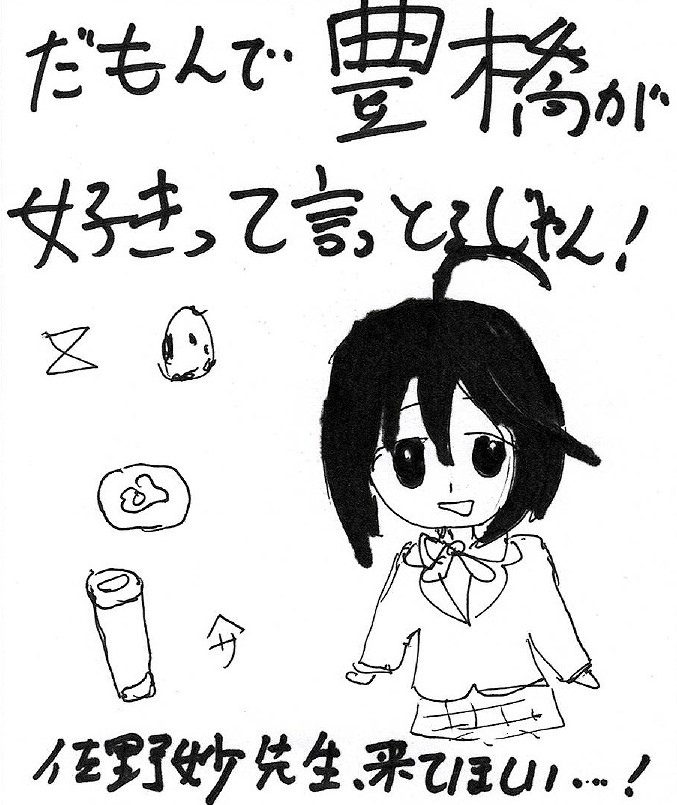 だもんで豊橋が
好きって言っとるじゃん!
サ
佐野妙先生、来てほしい…!